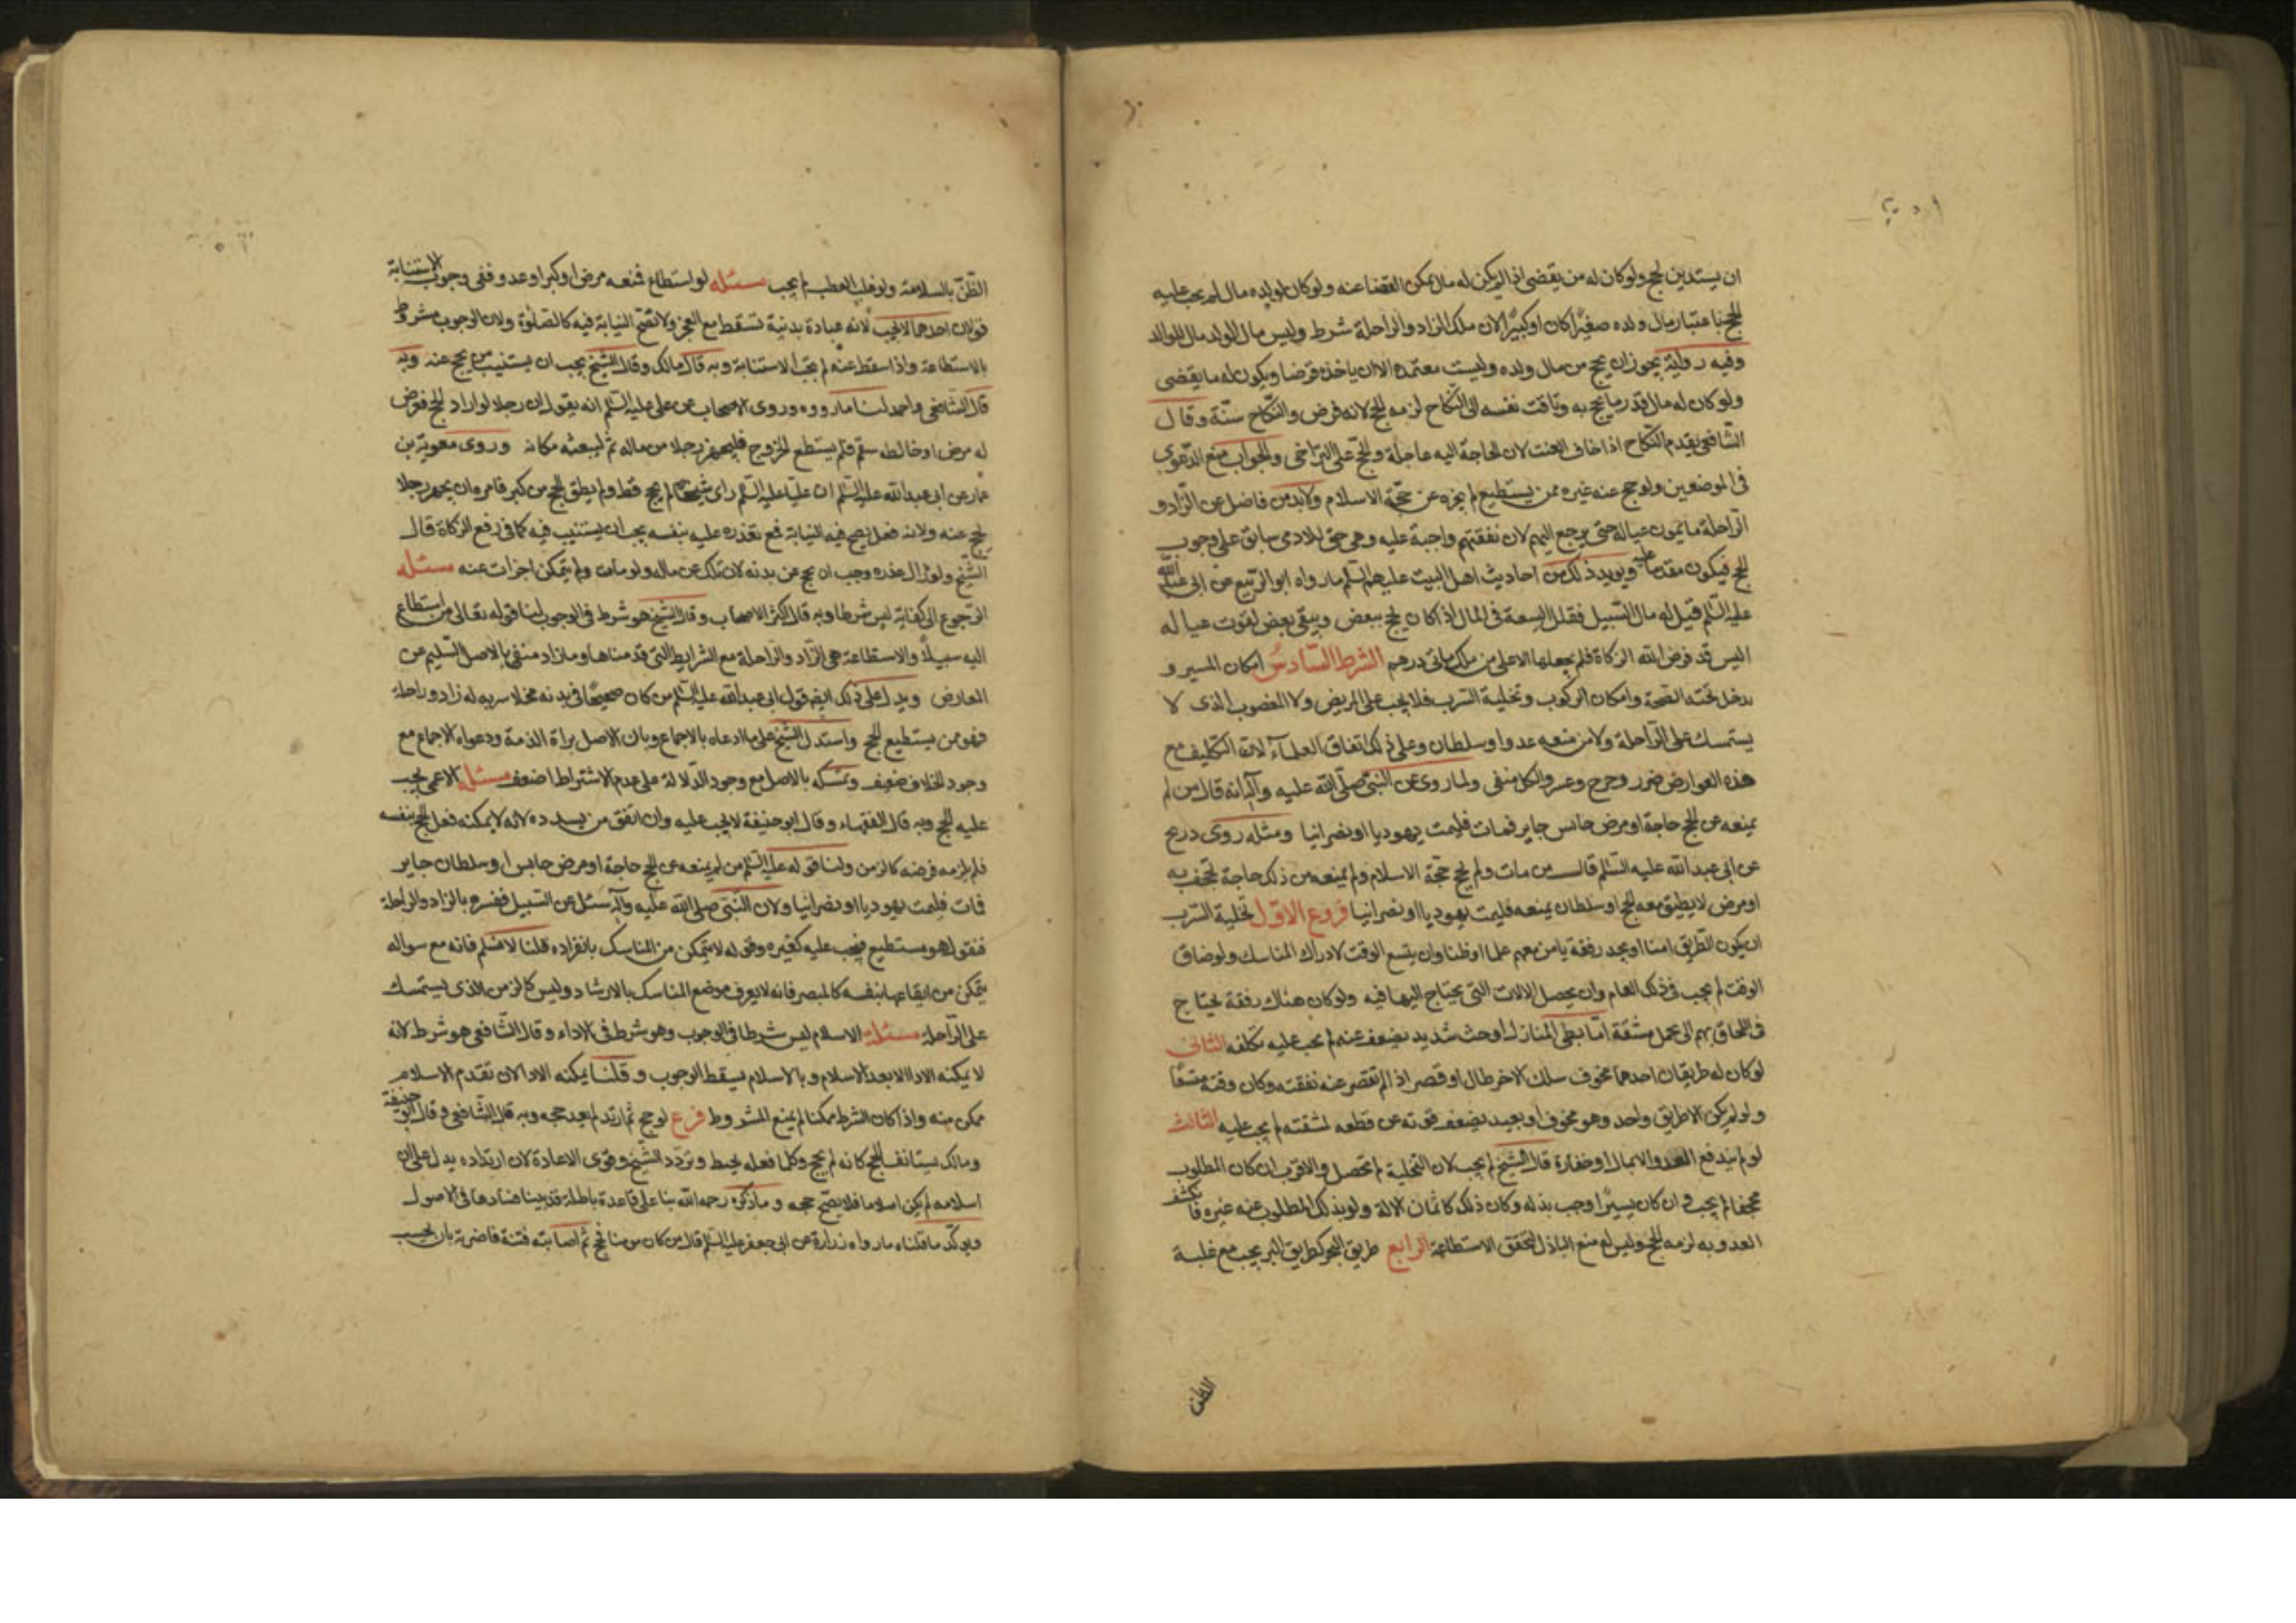 ان يستدين للحج ولو كان له من يقضى اذا لم يكن له مال يمكن القضا عنه ولو كان لولده مال لم يجب عليه
الحج باعتبار مال ولده صغيرًا كان او كبيرًا لان ملك الزاد والراحلة شرط وليس مال الولد مال للوالد
وفيه رواية يجوز ان يحج من مال ولده وليست معتمدة الا ان ياخذه قرضا ويكون له ما يقضى
ولو كان له مال قدر ما يحج به وتاقت نفسه الى النكاح لزمه الحج لانه فرض والنكاح سنّة وقال
الشافعى يقدم النكاح اذا خاف العنت لان الحاجة اليه عاجلة والحج على التراخى والجواب منع الدعوى
فى الموضعين ولو حج عنه غيره ممن يستطيع لم يجزه عن حجة الاسلام ولابد من فاضل عن الزاد و
الراحلة ما يمون عياله حتى يرجع اليهم لان نفقتهم واجبة عليه وهى حق للادمى سابق على وجوب
الحج فيكون مقدما عليه ويويد ذلك من احاديث اهل البيت عليهم السلم ما رواه ابو الربيع عن ابى عبد الله
عليه السلم قيل له ما السبيل فقال السعة فى المال اذا كان يحج ببعض ويبقى بعض لقوت عياله
اليس قد فرض الله الزكاة فلم يجعلها الا على من ملك مائتى درهم الشرط السّادس امكان المسير و
يدخل تحته الصحة وامكان الركوب وتخلية السرب فلا يجب على المريض ولا المعضوب الذى لا
يستمسك على الراحلة ولا من منعه عدو او سلطان وعلى ذلك اتفاق العلمآء لان التكليف مع
هذه العوارض ضرر وحرج وعسر والكل منفى ولما روى عن النبى صلى الله عليه وآله انه قال من لم
يمنعه عن الحج حاجة او مرض حابس جاير فمات فليمت يهوديا او نصرانيا ومثله روى ذريح
عن ابى عبد الله عليه السلم قال من مات ولم يحج حجة الاسلام ولم يمنعه من ذلك حاجة تجحف به
او مرض لا يطيق معه الحج او سلطان يمنعه فليمت يهوديا او نصرانيا فروع الاول تخلية السرب
ان يكون الطريق امنا او يجد رفقة يامن معهم علما او ظنا وان يتسع الوقت لادراك المناسك ولو ضاق
الوقت لم يجب فى ذلك العام وان يحصل الالات التى يحتاج اليها فيه ولو كان هناك رفقة يحتاج
فى اللحاق بهم الى تحمل مشقة اما بطى المنازل او حث شديد يضعف عنه لم يجب عليه تكلفه الثانى
لو كان له طريقان احدهما مخوف سلك الاخر طال او قصر اذا لم تقصر عنه نفقته وكان وقته متسعًا
ولو لم يكن الا طريق واحد وهو مخوف او بعيد يضعف قوته عن قطعه لمشقته لم يجب عليه الثالث
لو لم يندفع العدو الا بمال او خفارة قال الشيخ لم يجب لان التخلية لم تحصل والاقرب ان كان المطلوب
مجحفا لم يجب وان كان يسيرًا وجب بذله وكان ذلك كاثمان الالة ولو بذل المطلوب عنه غيره فانكشف
العدو به لزمه الحج وليس له منع الباذل لتحقق الاستطاعة الرابع طريق البحر كطريق البر يجب مع غلبة
الظن
الظنّ بالسلامة ولو غلب العطب لم يجب مسئله لو استطاع فمنعه مرض او كبر او عدو ففى وجوب الاستنابة
قولان احدهما لا يجب لانه عبادة بدنية تسقط مع العجز ولا تصح النيابة فيه كالصلوة ولان الوجوب مشروط
بالاستطاعة واذا سقط عنه لم تجب الاستنابة وبه قال مالك وقال الشيخ يجب ان يستنيب من يحج عنه وبه
قال الشافعى واحمد لنا ما رووه وروى الاصحاب عن على عليه السلم انه يقول ان رجلا لو اراد الحج فعرض
له مرض او خالطه سقم فلم يستطع الخروج فليجهز رجلا من ماله ثم ليبعثه مكانه وروى معوية بن
عمار عن ابى عبد الله عليه السلم ان عليا عليه السلم راى شيخا لم يحج قط ولم يطق الحج من كبر فامره ان يجهز رجلا
يحج عنه ولانه فعل يصح فيه النيابة فمع تعذره عليه بنفسه يجب ان يستنيب فيه كما فى دفع الزكاة قال
الشيخ ولو زال عذره وجب ان يحج عن بدنه لان تلك عن ماله ولو مات ولم يتمكن اجزات عنه مسئله
الرجوع الى كفاية ليس شرطا وبه قال اكثر الاصحاب وقال الشيخ هو شرط فى الوجوب لنا قوله تعالى من استطاع
اليه سبيلًا والاستطاعة هى الزاد والراحلة مع الشرايط التى قدمناها وما زاد منفى بالاصل السليم عن
العارض ويدل على ذلك ايضا قول ابى عبد الله عليه السلم من كان صحيحًا فى بدنه مخلا سربه له زاد وراحلة
فهو ممن يستطيع الحج واستدل الشيخ على ما ادعاه بالاجماع وبان الاصل براة الذمة ودعواه الاجماع مع
وجود الخلاف ضعيف وتمسكه بالاصل مع وجود الدلالة على عدم الاشتراط اضعف مسئله الاعمى يجب
عليه الحج وبه قال الفقهاء وقال ابو حنيفة لا يجب عليه وان اتفق من يسدده لانه لا يمكنه فعل الحج بنفسه
فلم يلزمه فرضه كالزمن ولنا قوله عليه السلم من لم يمنعه عن الحج حاجة او مرض حابس او سلطان جاير
فمات فليمت يهوديا او نصرانيا ولان النبى صلى الله عليه وآله سئل عن السبيل ففسره بالزاد والراحلة
ففقولهو مستطيع فيجب عليه كغيره وقوله لا يتمكن من المناسك بانفراده قلنا لا نسلم فانه مع سواله
يتمكن من ايقاعها بنفسه كالمبصر فانه لا يعرف موضع المناسك بالارشاد وليس كالزمن الذى يستمسك
على الراحلة مسئلة الاسلام ليس شرطا فى الوجوب وهو شرط فى الاداء وقال الشافعى هو شرط لانه
لا يمكنه الادا الا بعد الاسلام وبالاسلام يسقط الوجوب وقلنا يمكنه الادا لان تقدم الاسلام
ممكن منه واذا كان الشرط ممكنا لم يمنع المشروط فرع لو حج ثم ارتد لم يعد حجه وبه قال الشافعى وقال ابو حنيفة
ومالك يستانف الحج كانه لم يحج وكلما فعله يحبط وتردد الشيخ وقوى الاعادة لان ارتداده يدل على ان
اسلامه لم يكن اسلاما فلا يصح حجه وما ذكره رحمه الله بنا على قاعدة باطلة قد بينا فسادها فى الاصول
ويوكّد ما قلناه ما رواه زرارة عن ابى جعفر عليه السلم قال من كان مومنا فحج ثم اصابته فتنة فاضرته بان يحسب